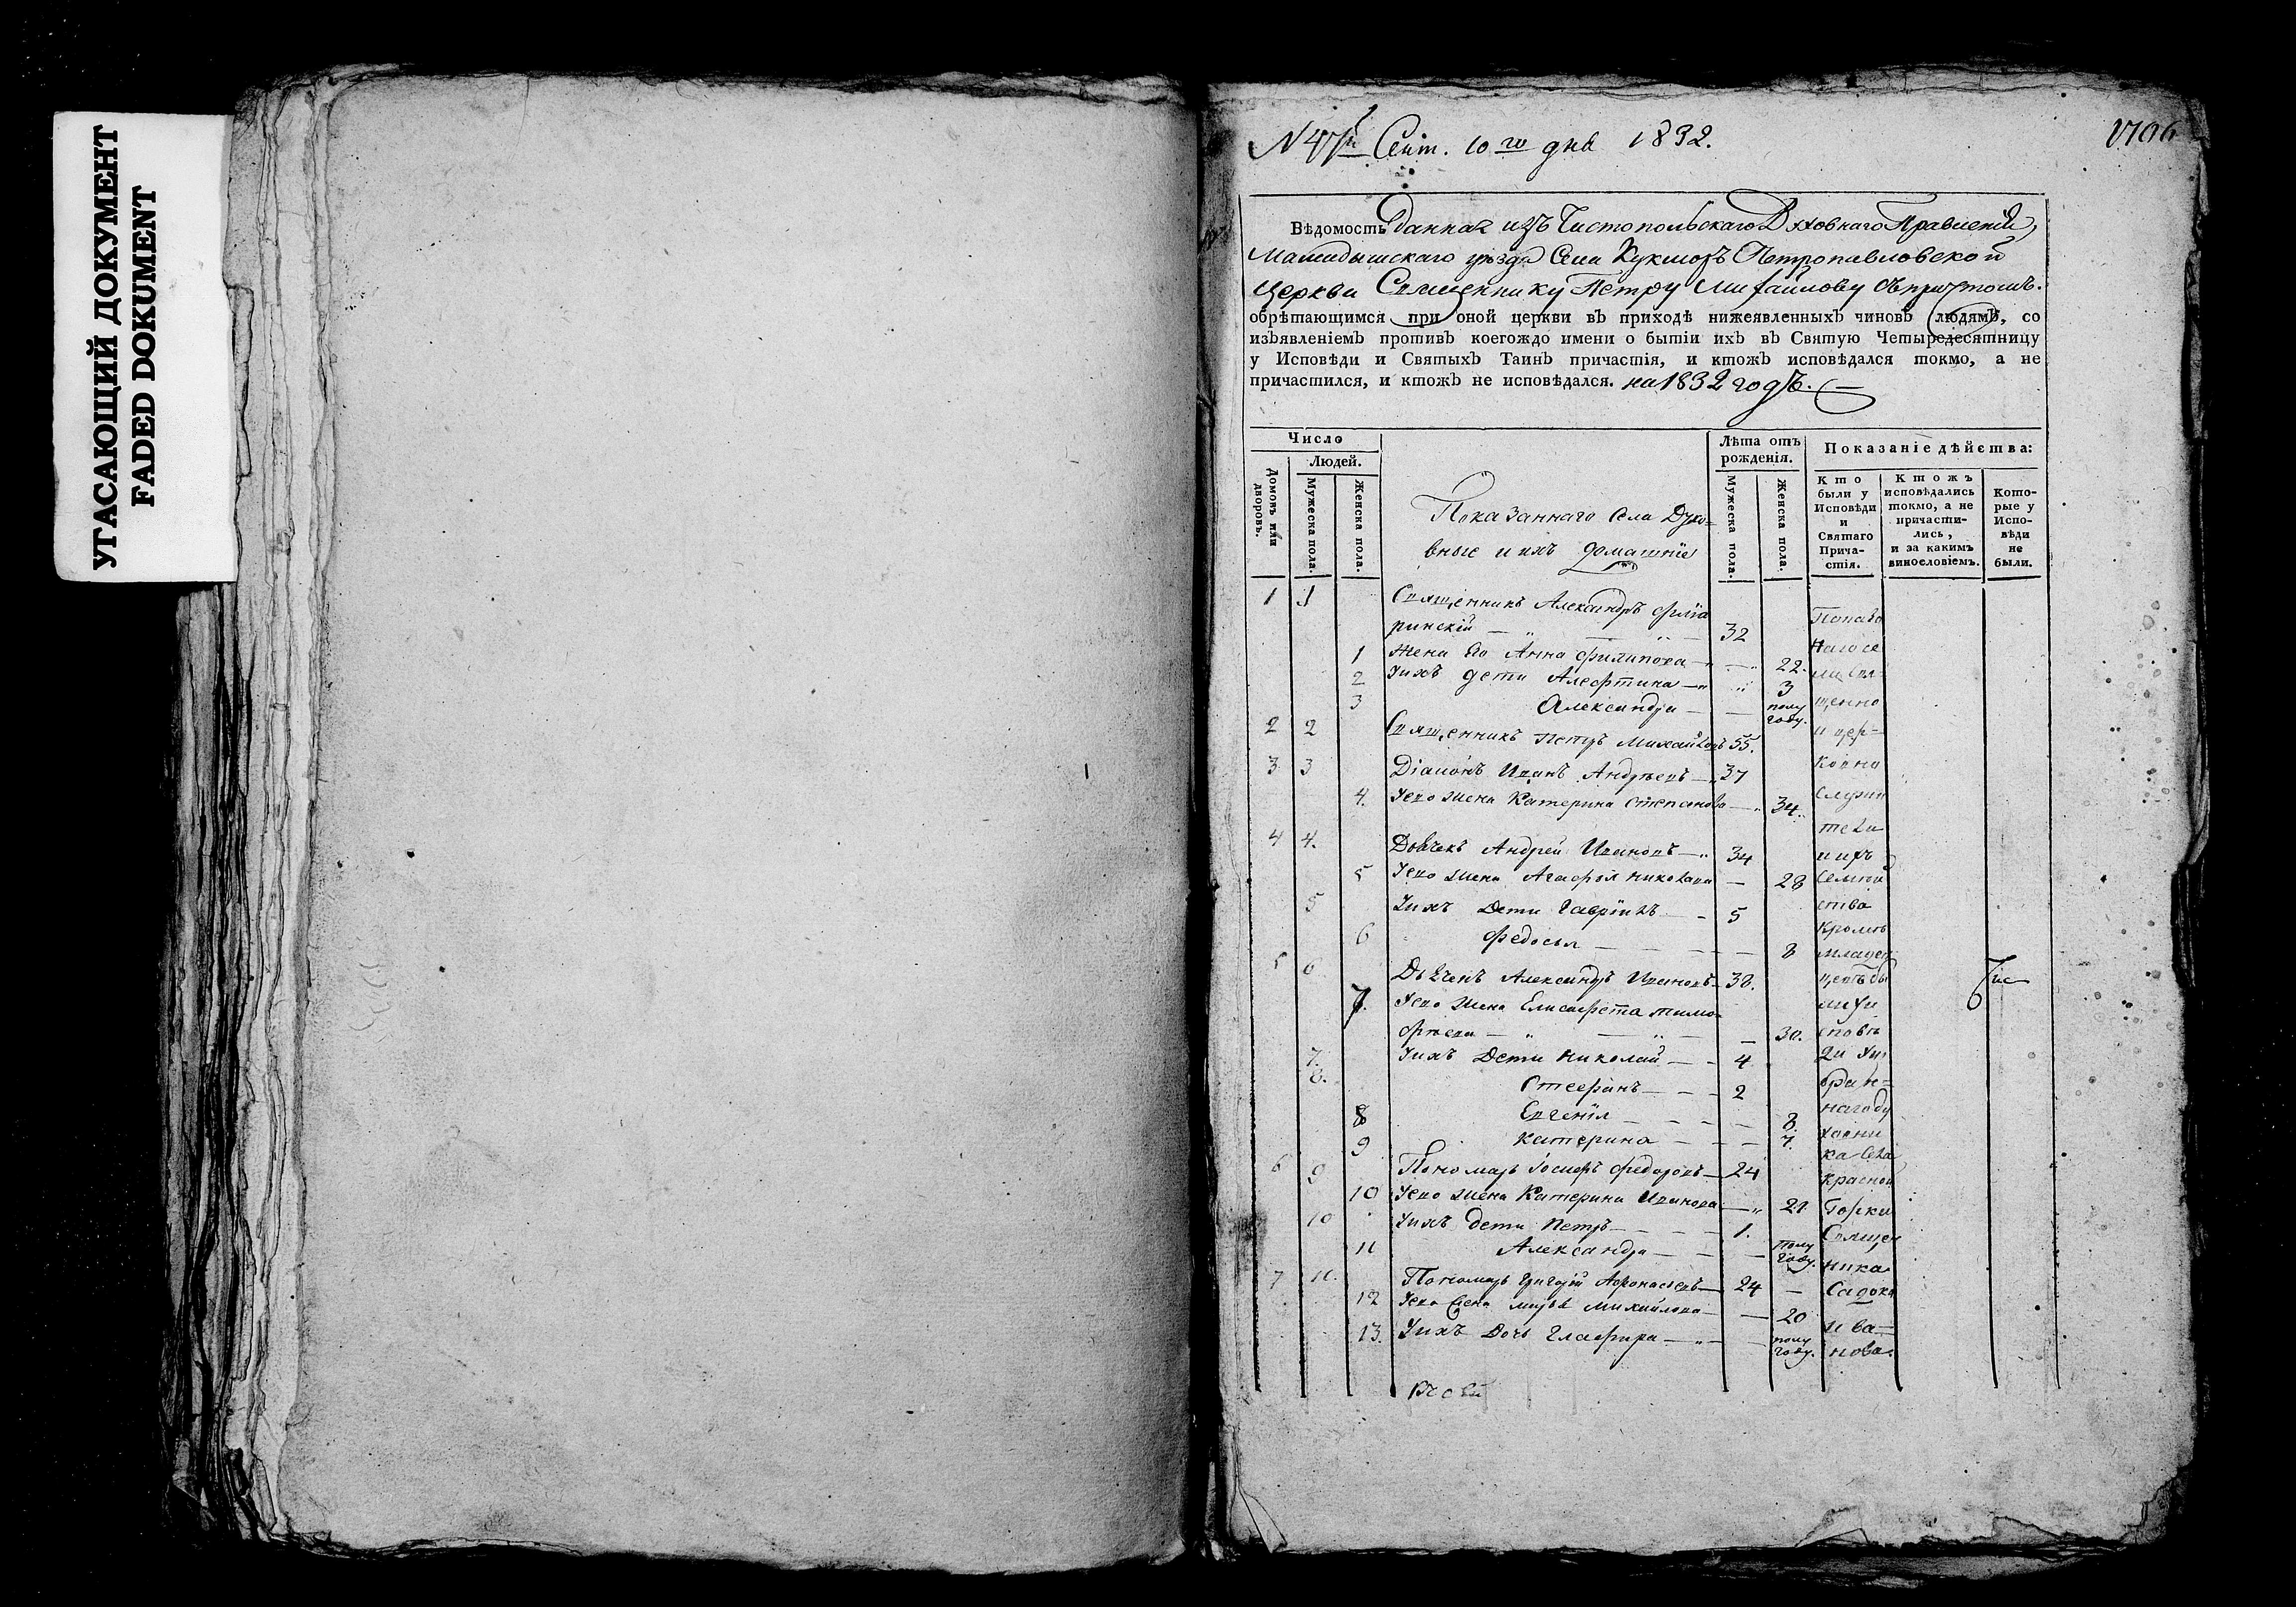 УГАСАЮЩИЙ ДОКУМЕНТ
FADED DOKUMENT
N 47й Сент. 10 го дня 1832.
Вѣдомость данная изъ Чистопольскаго Духовнаго Правленія,
Мамадышскаго уѣзда Села Кукморъ Петропавловской
Церкви Священнику Петру Михайлову съ причтомъ.
обрѣтающимся при оной церкви въ приходѣ нижеявленныхъ чиновъ людямъ, со
изъявленіемъ противъ коегождо имени о бытіи ихъ въ Святую Четыредесятницу
у Исповѣди и Святыхъ Таинъ причастія, и ктожъ исповѣдался токмо, а не
причастился, и ктожъ не исповѣдался. на 1832 годъ.
Число
Людей.
Домовъ или дворовъ.
Мужеска пола.
Женска пола.
Показаннаго Села Духо-
вные и ихъ домашніе
Лѣта отъ рожденія.
Мужеска пола.
Женска пола.
Показаніе дѣйства:
Кто были у Исповѣди и Святаго Причастія.
Ктожъ исповѣдались токмо, а не причастились, и за какимъ винословіемъ.
Которые у Исповѣди не были.
1 1 Священникъ Александръ
ринскій 32
1 Жена Его Анна Филипова 22.
2 Уихъ дети Алефтина 3
3 Александра полу году.
2 2 Священникъ Петръ Михайловъ 55.
3 3 Діаконъ Иванъ Андреевъ 37
4. Уево жена Катерина Степанова 34.
4 4. Дьячекъ Андрей Ивановъ 34
5 Уево жена Агафья Николаева 28
5 Уихъ Дети Гавріилъ 5
6 Федосья 8
5 6 Дьячекъ Александръ Ивановъ 38.
7. Уево жена Елисавета Тимо-
фѣева 30.
7. Уихъ Дети Николай 4
8. Стефанъ 2
8 Евгенія 8.
9 Катерина 7.
6 9 Пономарь Іосифъ Федоровъ 24
10 Уево жена Катерина Иванова 21
10 Уихъ дети Петръ 1.
11 Александра полу году.
7 11. Пономарь Григорій Афонасьевъ 24
12 Уево жена Марья Михайлова 20
13. Уихъ Дочь Глафира полу году.
щенно
и цер-
ковно
служи
тели
и ихъ
семей
ства
Кромѣ
младен
цевъ бы
ли у и
сповѣ
ди у из
бран-
наго ду
ховни
ка Села
Красной
Горки
Священ
ника
Садока
Ива-
нова.